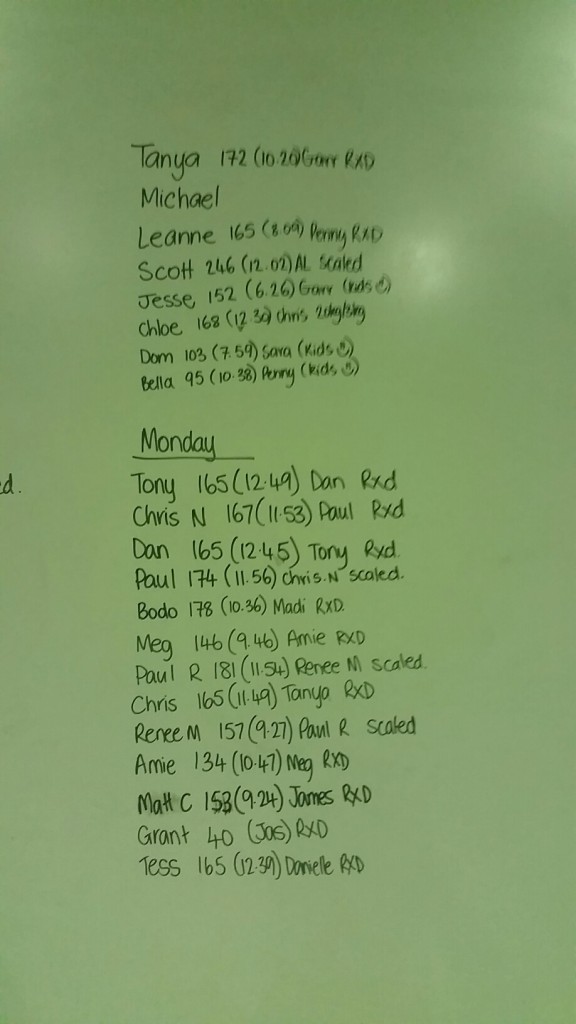 Tanya 172 (10.20) Garr RXD
Michael
Leanne 165 (8.09) Penny RXD
Scott 246 (12.02) AL Scaled
Jesse 152 (6.26) Garr (kids ☺)
Chloe 168 (12.30) Chris
Dom 103 (7.59) Sara (kids ☺)
Bella 95 (10.38) Penny (kids ☺)
Monday
ed.
Tony 165 (12.49) Dan Rxd
Chris N 167 (11.53) Paul Rxd
Dan 165 (12.45) Tony Rxd.
Paul 174 (11.56) Chris.N scaled.
Bodo 178 (10.36) Madi RXD.
Meg 146 (9.46) Amie RXD
Paul R 181 (11.54) Renee M scaled.
Chris 165 (11.49) Tanya RXD
Renee M 157 (9.27) Paul R scaled
Amie 134 (10.47) Meg RXD
Matt C 153 (9.24) James RXD
Grant 40 (Jas) RXD
Tess 165 (12.39) Danielle RXD